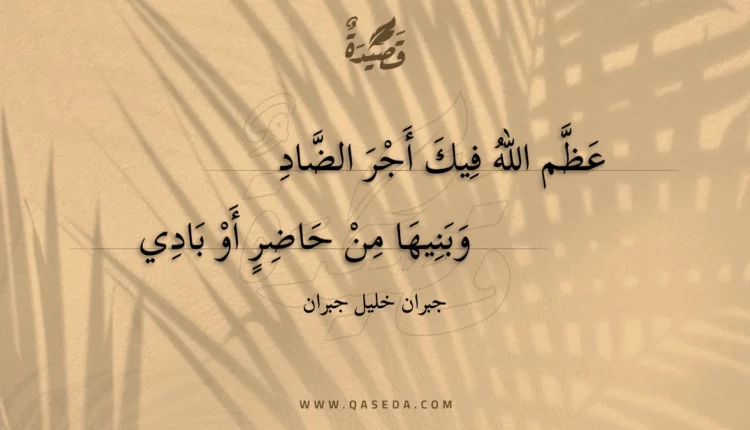 قَصِيْدَةٌ
عَظَّم اللهُ فِيكَ أَجْرَ الضَّادِ
وَبَنِيهَا مِنْ حَاضِرٍ أَوْ بَادِي
جبران خليل جبران
WWW.QASEDA.COM